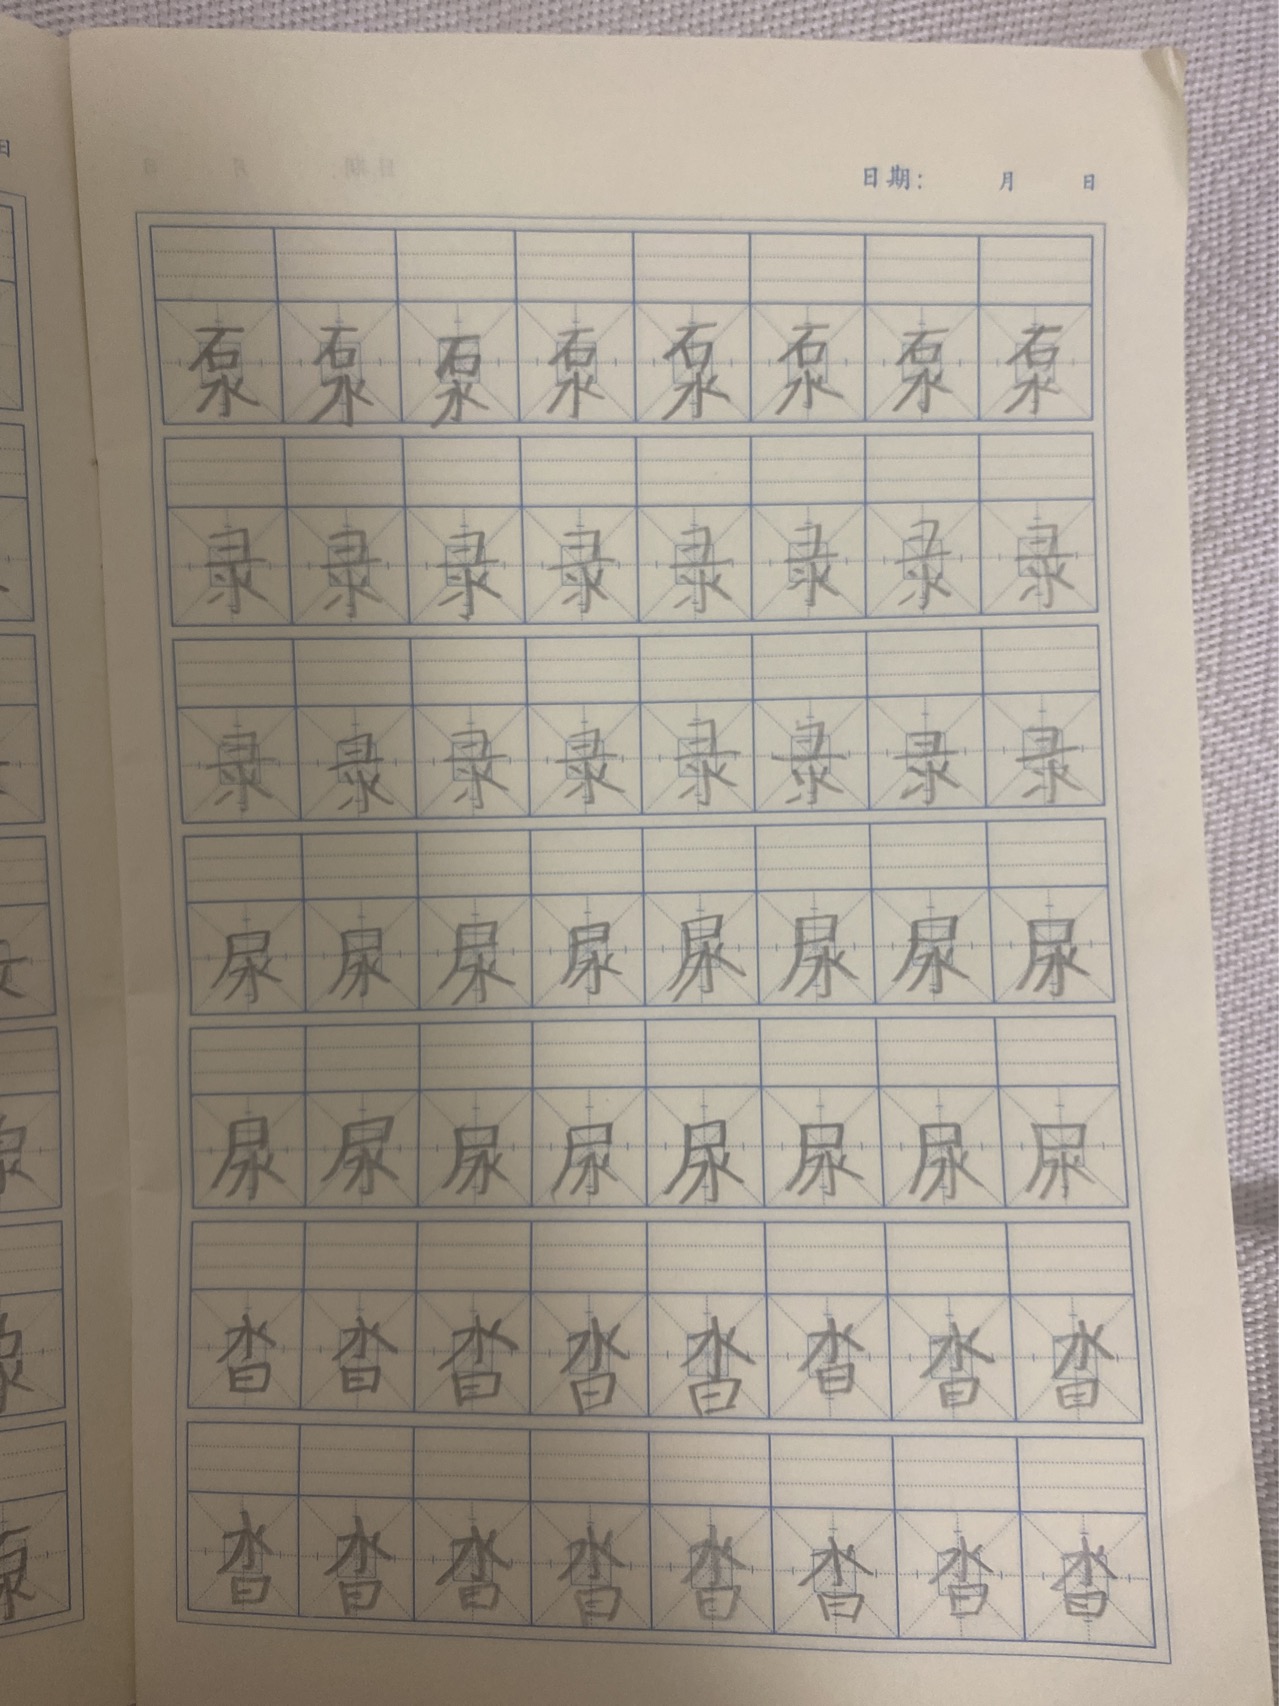 日期： 月 日
泵 泵 泵 泵 泵 泵 泵 泵
录 录 录 录 录 录 录 录
录 录 录 录 录 录 录 录
尿 尿 尿 尿 尿 尿 尿 尿
尿 尿 尿 尿 尿 尿 尿 尿
沓 沓 沓 沓 沓 沓 沓 沓
沓 沓 沓 沓 沓 沓 沓 沓